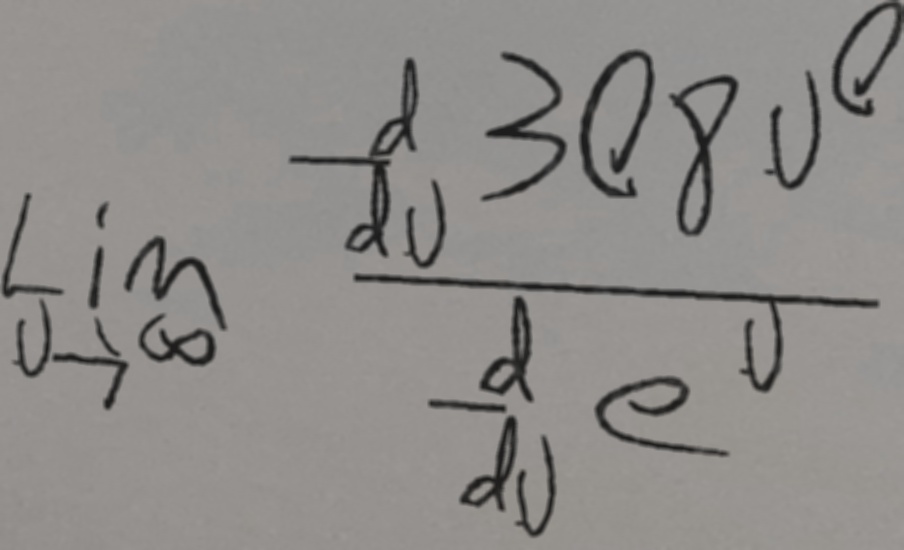 Lim_{v→∞} \frac{\frac{d}{dv} 308 v^{0}}{\frac{d}{dv} e^{v}}